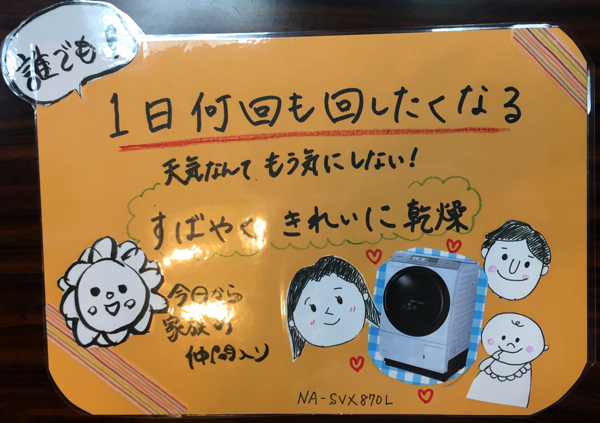 誰でも!
1日何回も回したくなる
天気なんてもう気にしない!
すばやくきれいに乾燥
今日から
家族の
仲間入り
NA-SVX870L